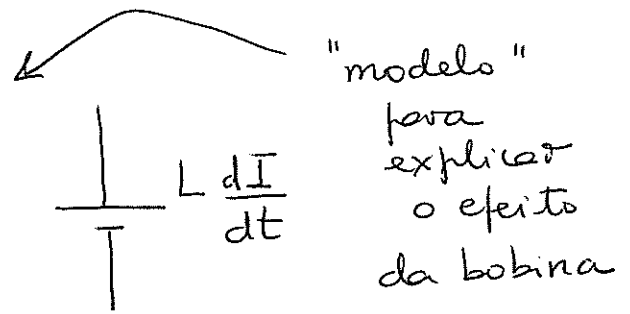 "modelo"
para
explicar
o efeito
da bobina
L dI/dt